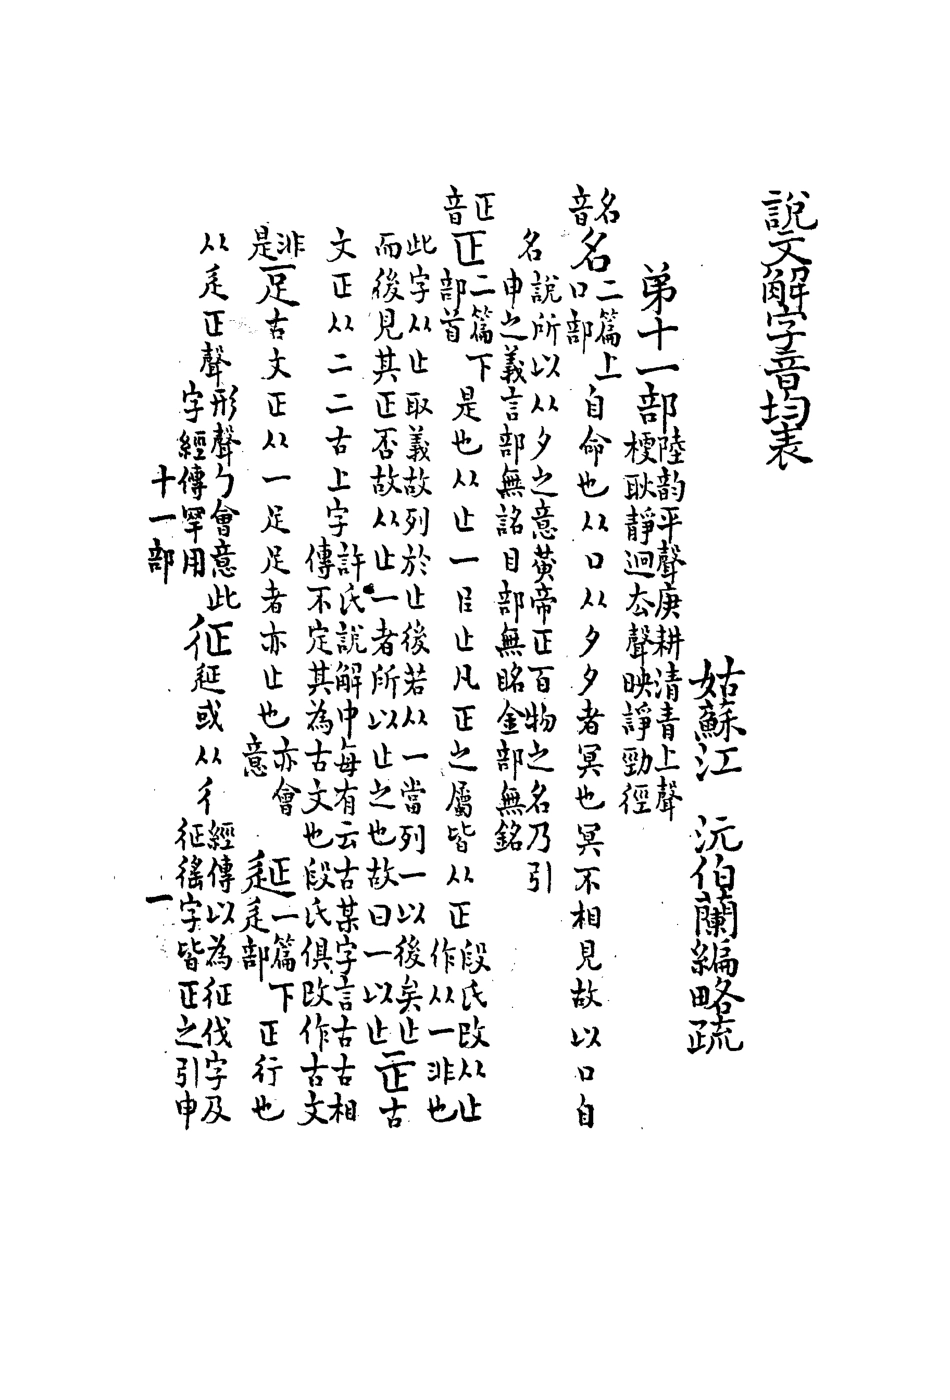 說文解字音均表
姑蘇江　沅伯蘭編略疏
第十一部
陸韵平聲庚耕清青上聲
梗耿靜迥去聲映諍勁徑
名音
名
二篇上
口部
自命也从口从夕夕者冥也冥不相見故以口自
名
說所以从夕之意黃帝正百物之名乃引
申之義言部無詺目部無眳金部無銘
正音
正
二篇下
部首
是也从止一㠯止凡正之屬皆从正
段氏改从止
作从一非也
此字从止取義故列於止後若从一當列一以後矣止
而後見其正否故从止一者所以止之也故曰一以止
古
文正从二二古上字
許氏說解中每有云古某字言古古相
傳不定其為古文也段氏俱改作古文
非
是
古文正从一足足者亦止也
亦會
意
篇下
辵部
正行也
从辵正聲
形聲勹會意此
字經傳罕用
征
延或从彳
經傳以為征伐字及
征徭字皆正之引申
十一部
一